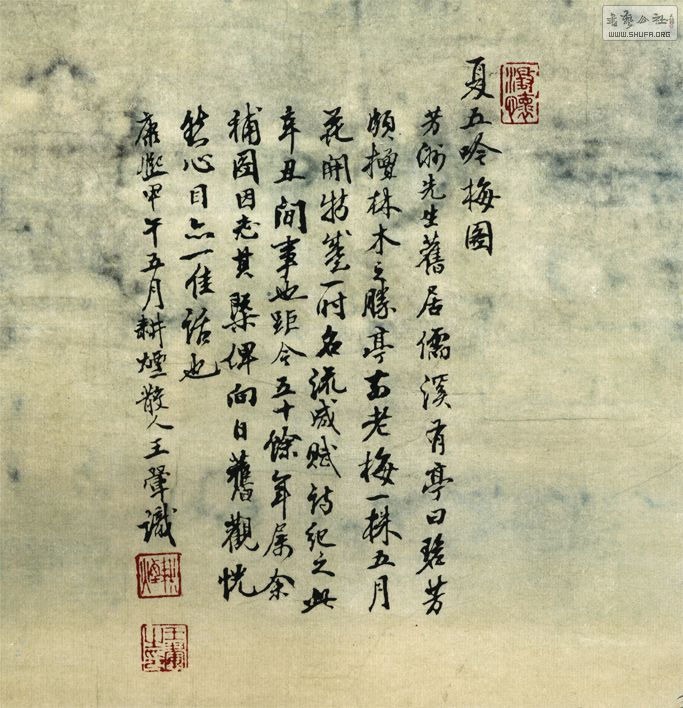 澄懷
夏五吟梅圖
芳洲先生舊居儒溪有亭曰碧芳
頗擅林木之勝亭前老梅一株五月
花開特盛一時名流咸賦詩紀之此
辛丑間事也距今五十餘年屬余
補圖因志其槩俾向日舊觀恍
然心目亦一佳話也
康熙甲午五月耕煙散人王翬識
耕煙
王翬之印
書藝公社
WWW.SHUFA.ORG